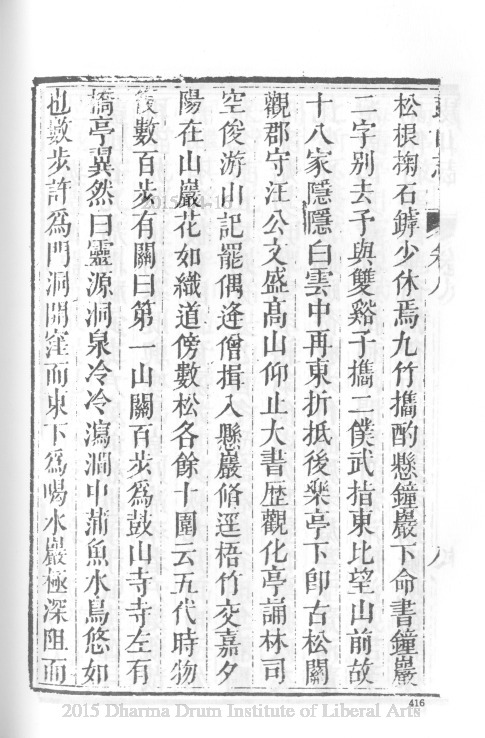 卷八
八
松根掬石罅少休焉九竹攜酌懸鐘巖下命書鐘巖
二字別去予與雙谿子攜二僕武指東比望山前故
十八家隱隱白雲中再東折抵後樂亭下卽古松關
觀郡守汪公文盛高山仰止大書歷觀化亭誦林司
空俊游山記罷偶逢僧揖入懸巖脩逕梧竹交嘉夕
陽在山巖花如織道傍數松各餘十圍云五代時物
復數百步有關曰第一山關百步爲鼓山寺寺左有
橋亭翼然曰靈源洞泉冷冷瀉澗中蒲魚水鳥悠如
也數步許爲門洞閉窪而東下爲喝水巖極深阻而
416
2015 Dharma Drum Institute of Liberal Arts